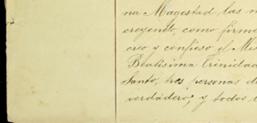 na Magestad las m
creyendo, como firme
creo y confieso el Mis
Beatísima Trinidad
Santo, tres personas d
verdadero; y todos